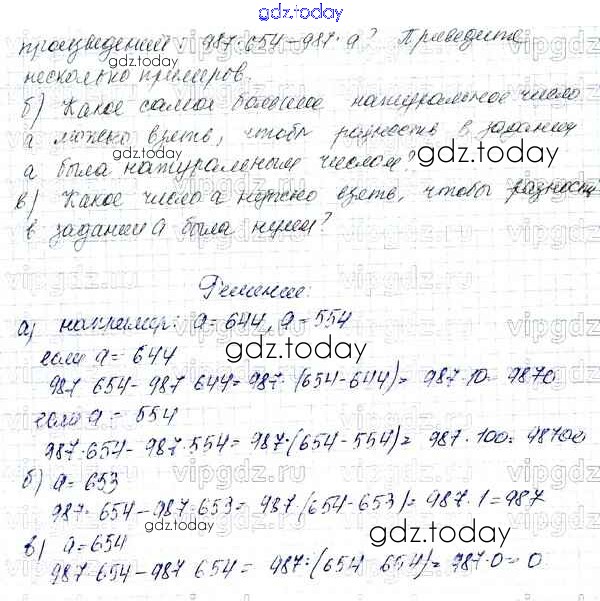 gdz.today
произведений 987·654-987·a? Приведите
несколько примеров.
б) Какое самое большое натуральное число
a можно взять, чтобы разность в задании
а была натуральным числом?
gdz.today
в) Какое число a нужно взять, чтобы разность
в задании а была нулем?
Решение:
а) например: a=644, a=554
если a=644
gdz.today
987 654-987 644=987·(654-644)=987·10=9870
если a=554
987·654-987·554=987·(654-554)=987·100=98700
б) a=653
987·654-987·653=987·(654-653)=987·1=987
gdz.today
gdz.today
в) a=654
987·654-987 654=987·(654 654)=987·0=0